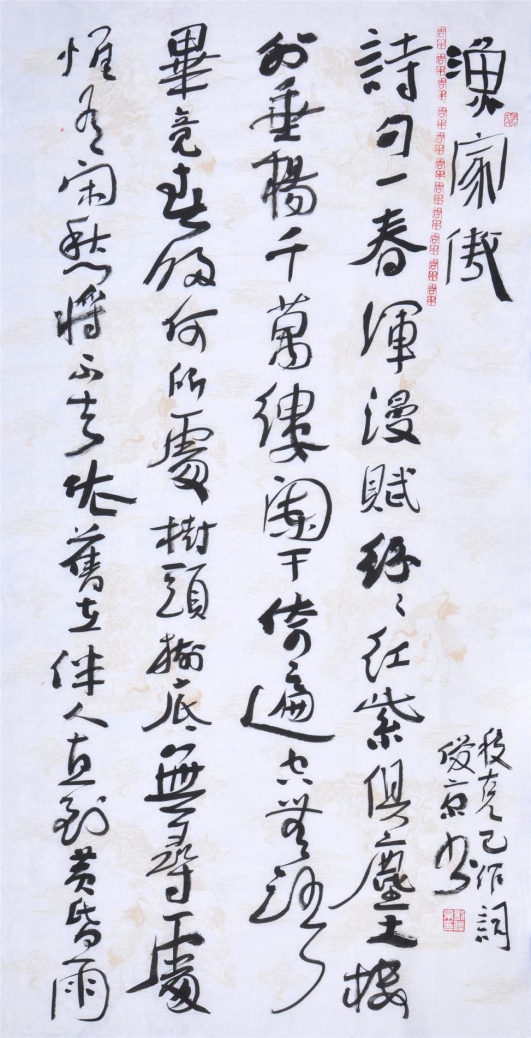 漁家傲
詩句一春渾漫賦紛〻紅紫俱塵土樓
外垂楊千萬縷闌干倚遍空無語
畢竟春歸何所處樹頭樹底無尋處
惟有閑愁將不去依舊伴人直到黃昏雨
段克己作詞
俊京书